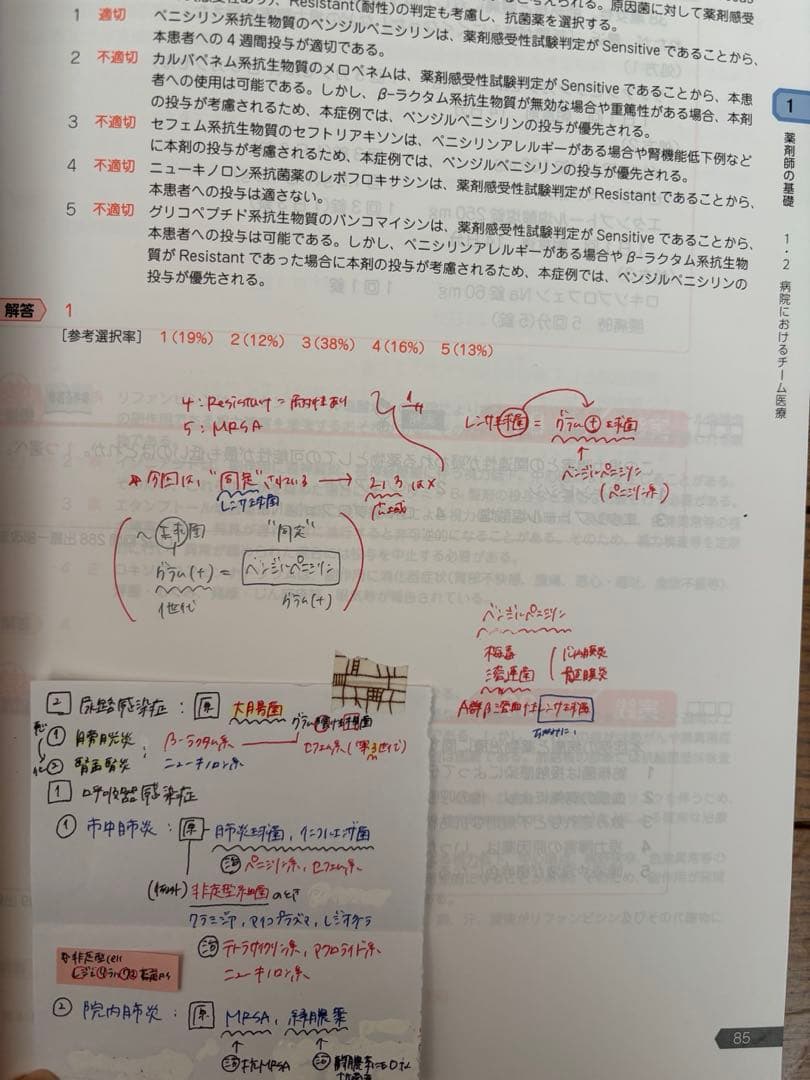 Resistant（耐性）の判定も考慮し、抗菌薬を選択する。
1 適切 ペニシリン系抗生物質のベンジルペニシリンは、薬剤感受性試験判定が Sensitive であることから、
本患者への 4 週間投与が適切である。
2 不適切 カルバペネム系抗生物質のメロペネムは、薬剤感受性試験判定が Sensitive であることから、本患
者への使用は可能である。しかし、β−ラクタム系抗生物質が無効な場合や重篤性がある場合、本剤
の投与が考慮されるため、本症例では、ベンジルペニシリンの投与が優先される。
3 不適切 セフェム系抗生物質のセフトリアキソンは、ペニシリンアレルギーがある場合や腎機能低下例など
に本剤の投与が考慮されるため、本症例では、ベンジルペニシリンの投与が優先される。
4 不適切 ニューキノロン系抗菌薬のレボフロキサシンは、薬剤感受性試験判定が Resistant であることから、
本患者への投与は適さない。
5 不適切 グリコペプチド系抗生物質のバンコマイシンは、薬剤感受性試験判定が Sensitive であることから、
本患者への投与は可能である。しかし、ペニシリンアレルギーがある場合や β−ラクタム系抗生物
質が Resistant であった場合に本剤の投与が考慮されるため、本症例では、ベンジルペニシリンの
投与が優先される。
1
薬剤師の基礎
1・2 病院におけるチーム医療
解答 1
［参考選択率］ 1（19%） 2（12%） 3（38%） 4（16%） 5（13%）
4：Resistant = 耐性あり
5：MRSA
レンサ球菌 = グラム(+)球菌
↑
ベンジルペニシリン
（ペニシリン系）
今回は、"同定"されている → 2, 3 は×
レンサ球菌
広域
〜球菌 "同定"
グラム(+) = ベンジルペニシリン
1世代 グラム(+)
ベンジルペニシリン
梅毒
心内膜炎
髄膜炎
A群β溶血性レンサ球菌
2 尿路感染症：原 大腸菌
① 膀胱炎：β-ラクタム系
セフェム系（第3世代）
② 腎盂腎炎 ニューキノロン系
1 呼吸器感染症
① 市中肺炎：原 肺炎球菌, インフルエンザ菌
治 ペニシリン系, セフェム系
非定型細菌のとき
クラミジア, マイコプラズマ, レジオネラ
治 テトラサイクリン系, マクロライド系
ニューキノロン系
② 院内肺炎：原 MRSA, 緑膿菌
↑ ↑
治 抗MRSA
85